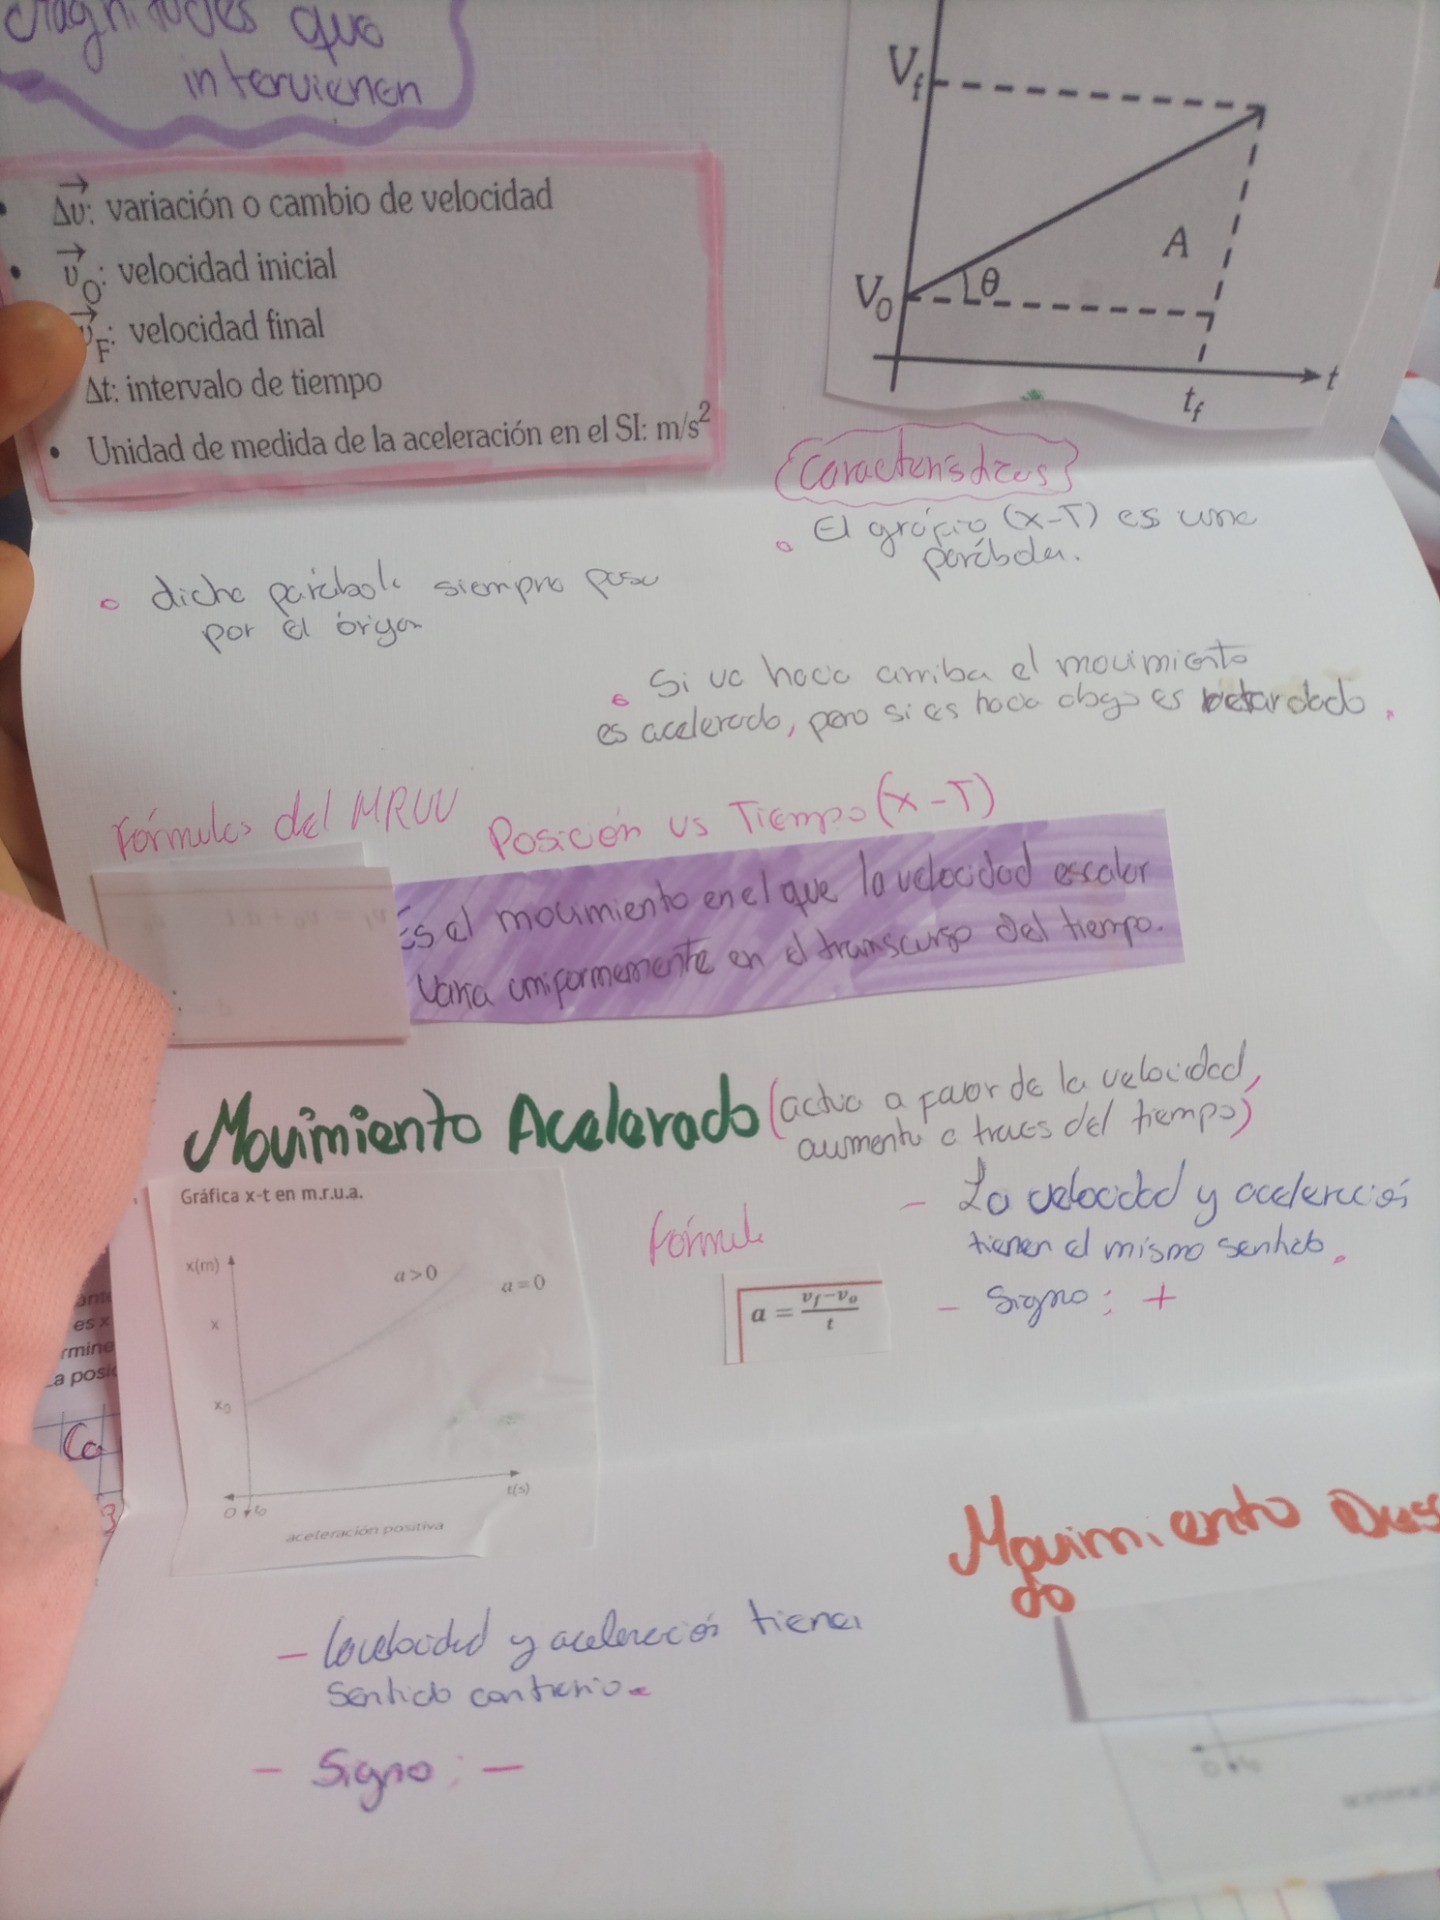 Magnitudes que
intervienen
Δv: variación o cambio de velocidad
v₀: velocidad inicial
v_F: velocidad final
Δt: intervalo de tiempo
Unidad de medida de la aceleración en el SI: m/s²
V_f
A
θ
V₀
t
t_f
Características
El gráfico (x-T) es una
parábola.
dicha parábola siempre pasa
por el origen
Si va hacia arriba el movimiento
es acelerado, pero si es hacia abajo es retardado.
Fórmulas del MRUV
Posición vs Tiempo (x-T)
Es el movimiento en el que la velocidad escalar
varia uniformemente en el transcurso del tiempo.
Movimiento Acelerado (actua a favor de la velocidad,
aumenta a traves del tiempo)
Gráfica x-t en m.r.u.a.
x(m)
a>0
a=0
x
x₀
0 t₀
t(s)
aceleración positiva
Fórmula
a = v_f-v_o / t
- La velocidad y aceleración
tienen el mismo sentido.
- Signo: +
es x
rmine
La posic
Ca
3
Movimiento Des
do
- La velocidad y aceleración tienen
sentido contrario.
- Signo: -